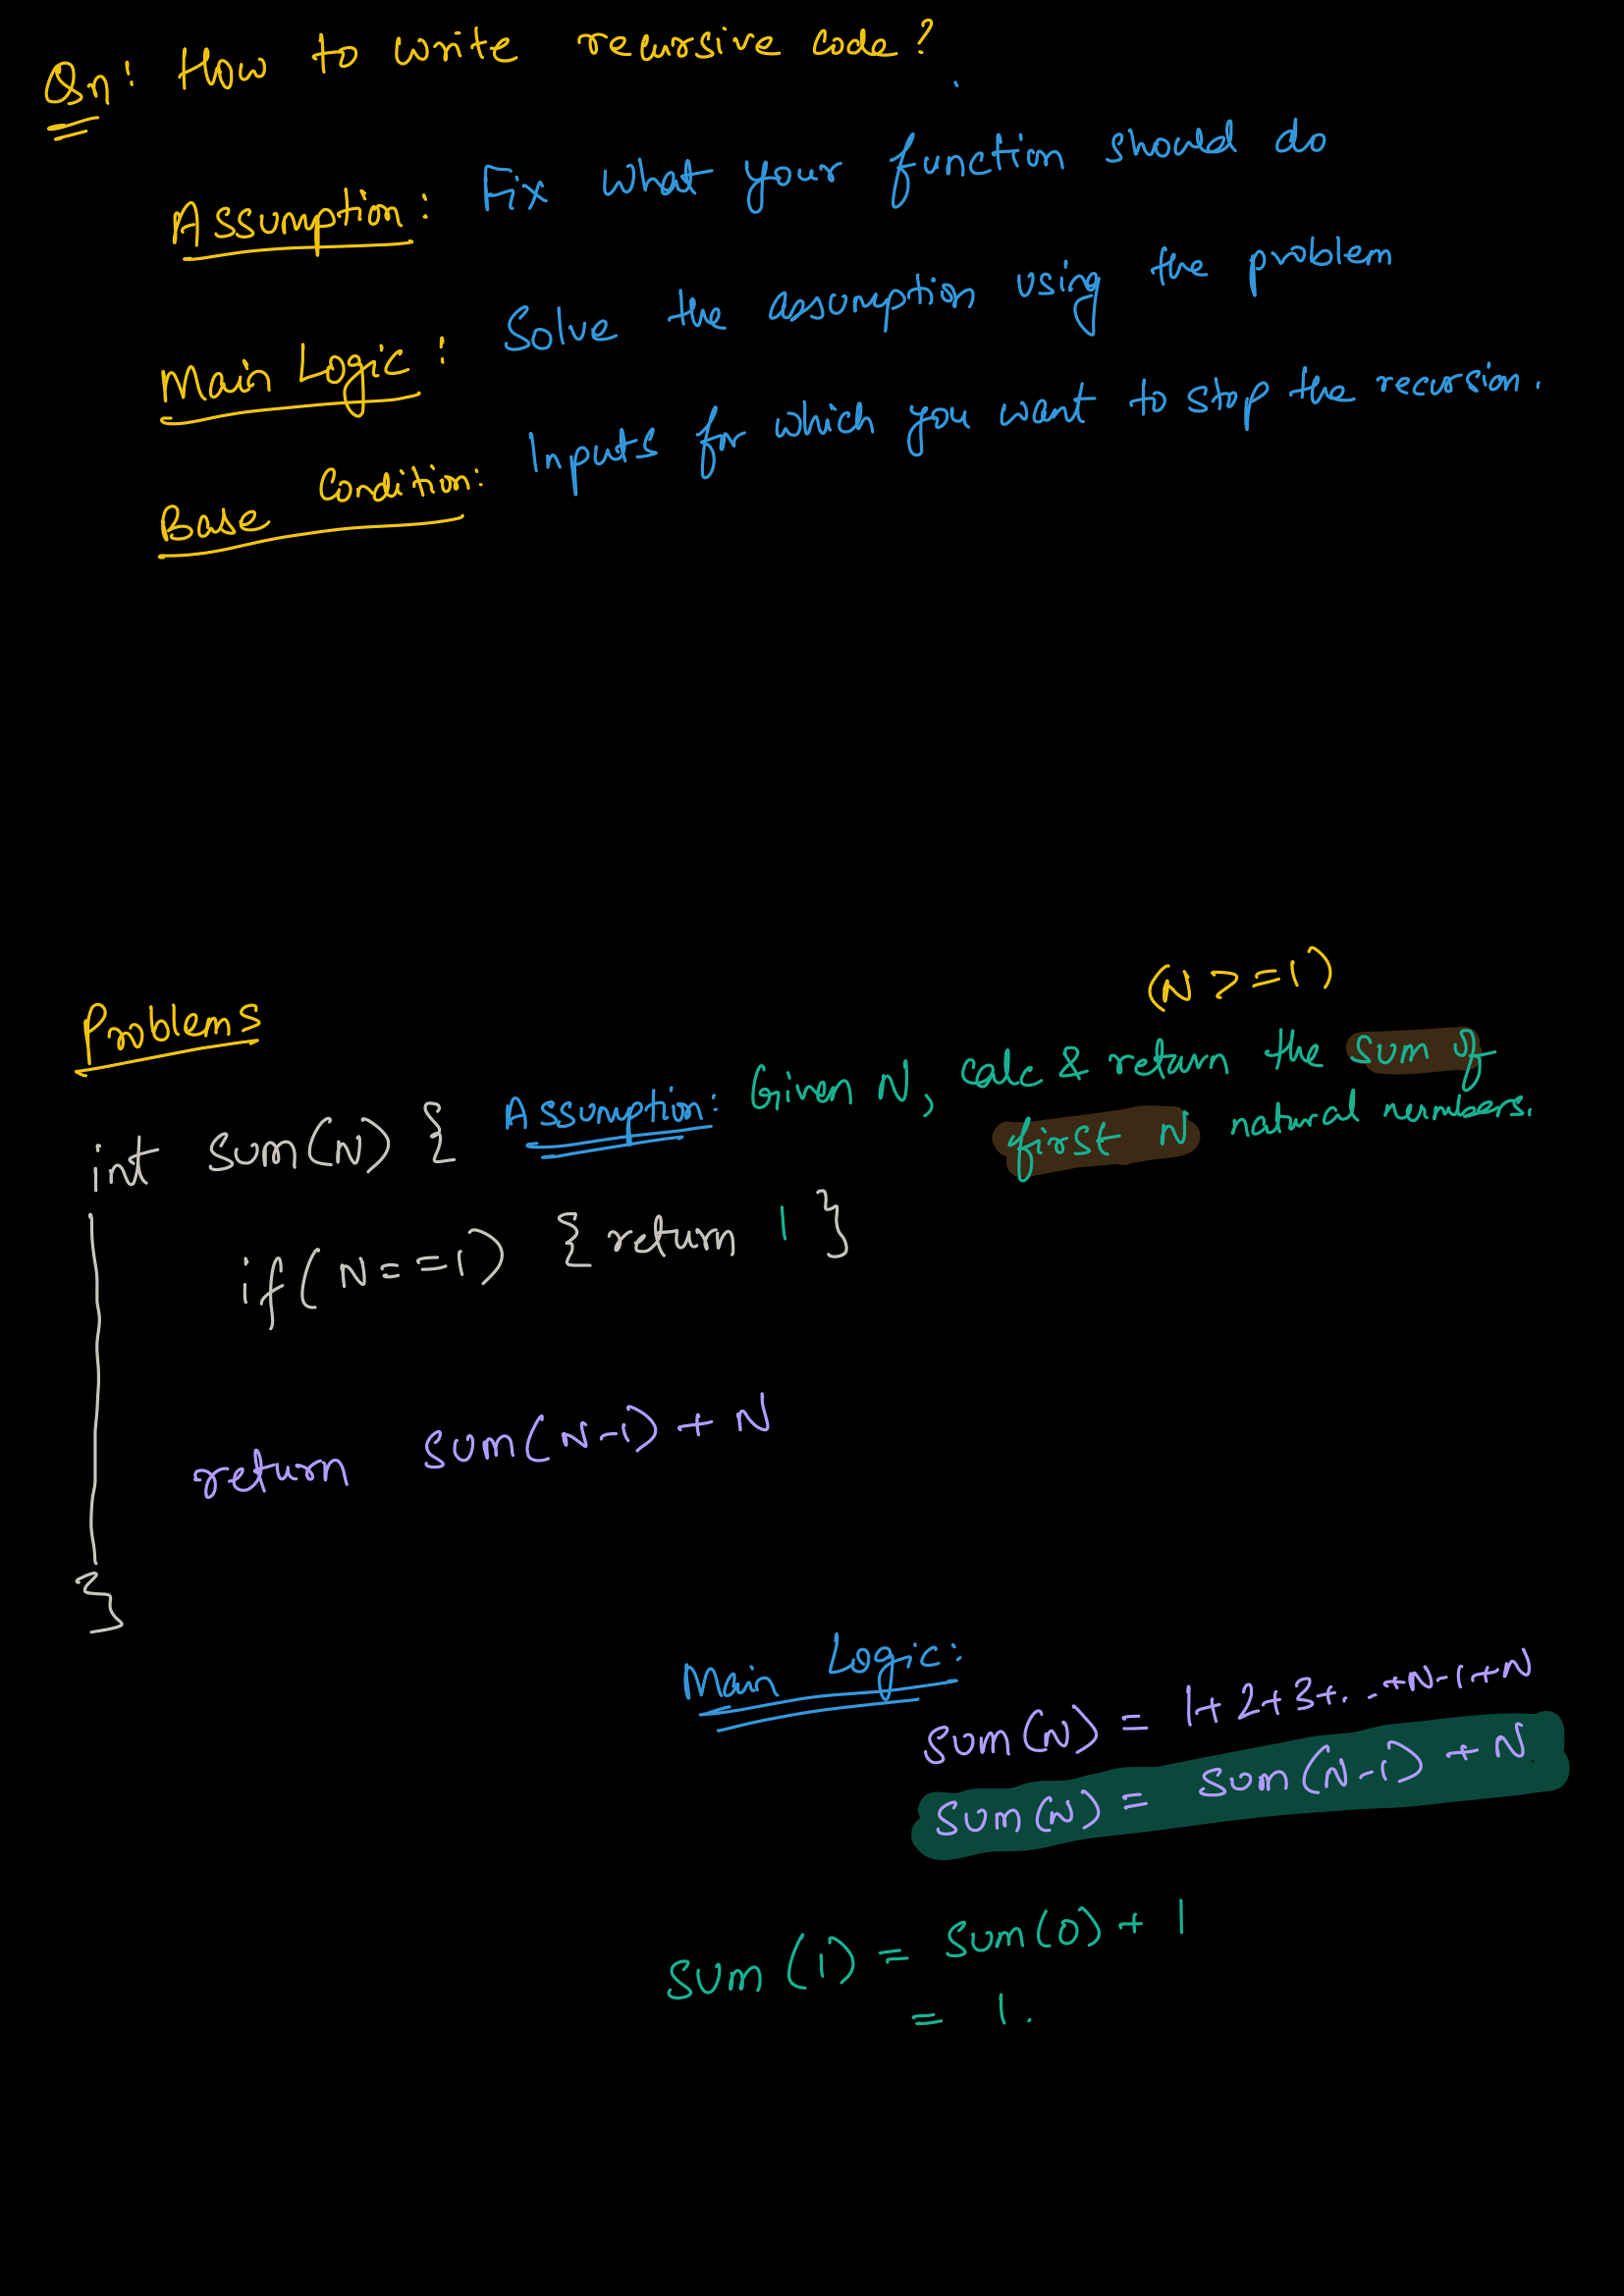 Qn: How to write recursive code?
Assumption: Fix what your function should do
Main Logic: Solve the assumption using the problem
Base Condition: Inputs for which you want to stop the recursion.
Problems
(N >= 1)
int sum(N) { Assumption: Given N, calc & return the sum of
first N natural numbers.
if(N==1) { return 1 }
return sum(N-1) + N
}
Main Logic:
sum(N) = 1+2+3+...+N-1+N
sum(N) = sum(N-1) + N
sum(1) = sum(0) + 1
= 1.